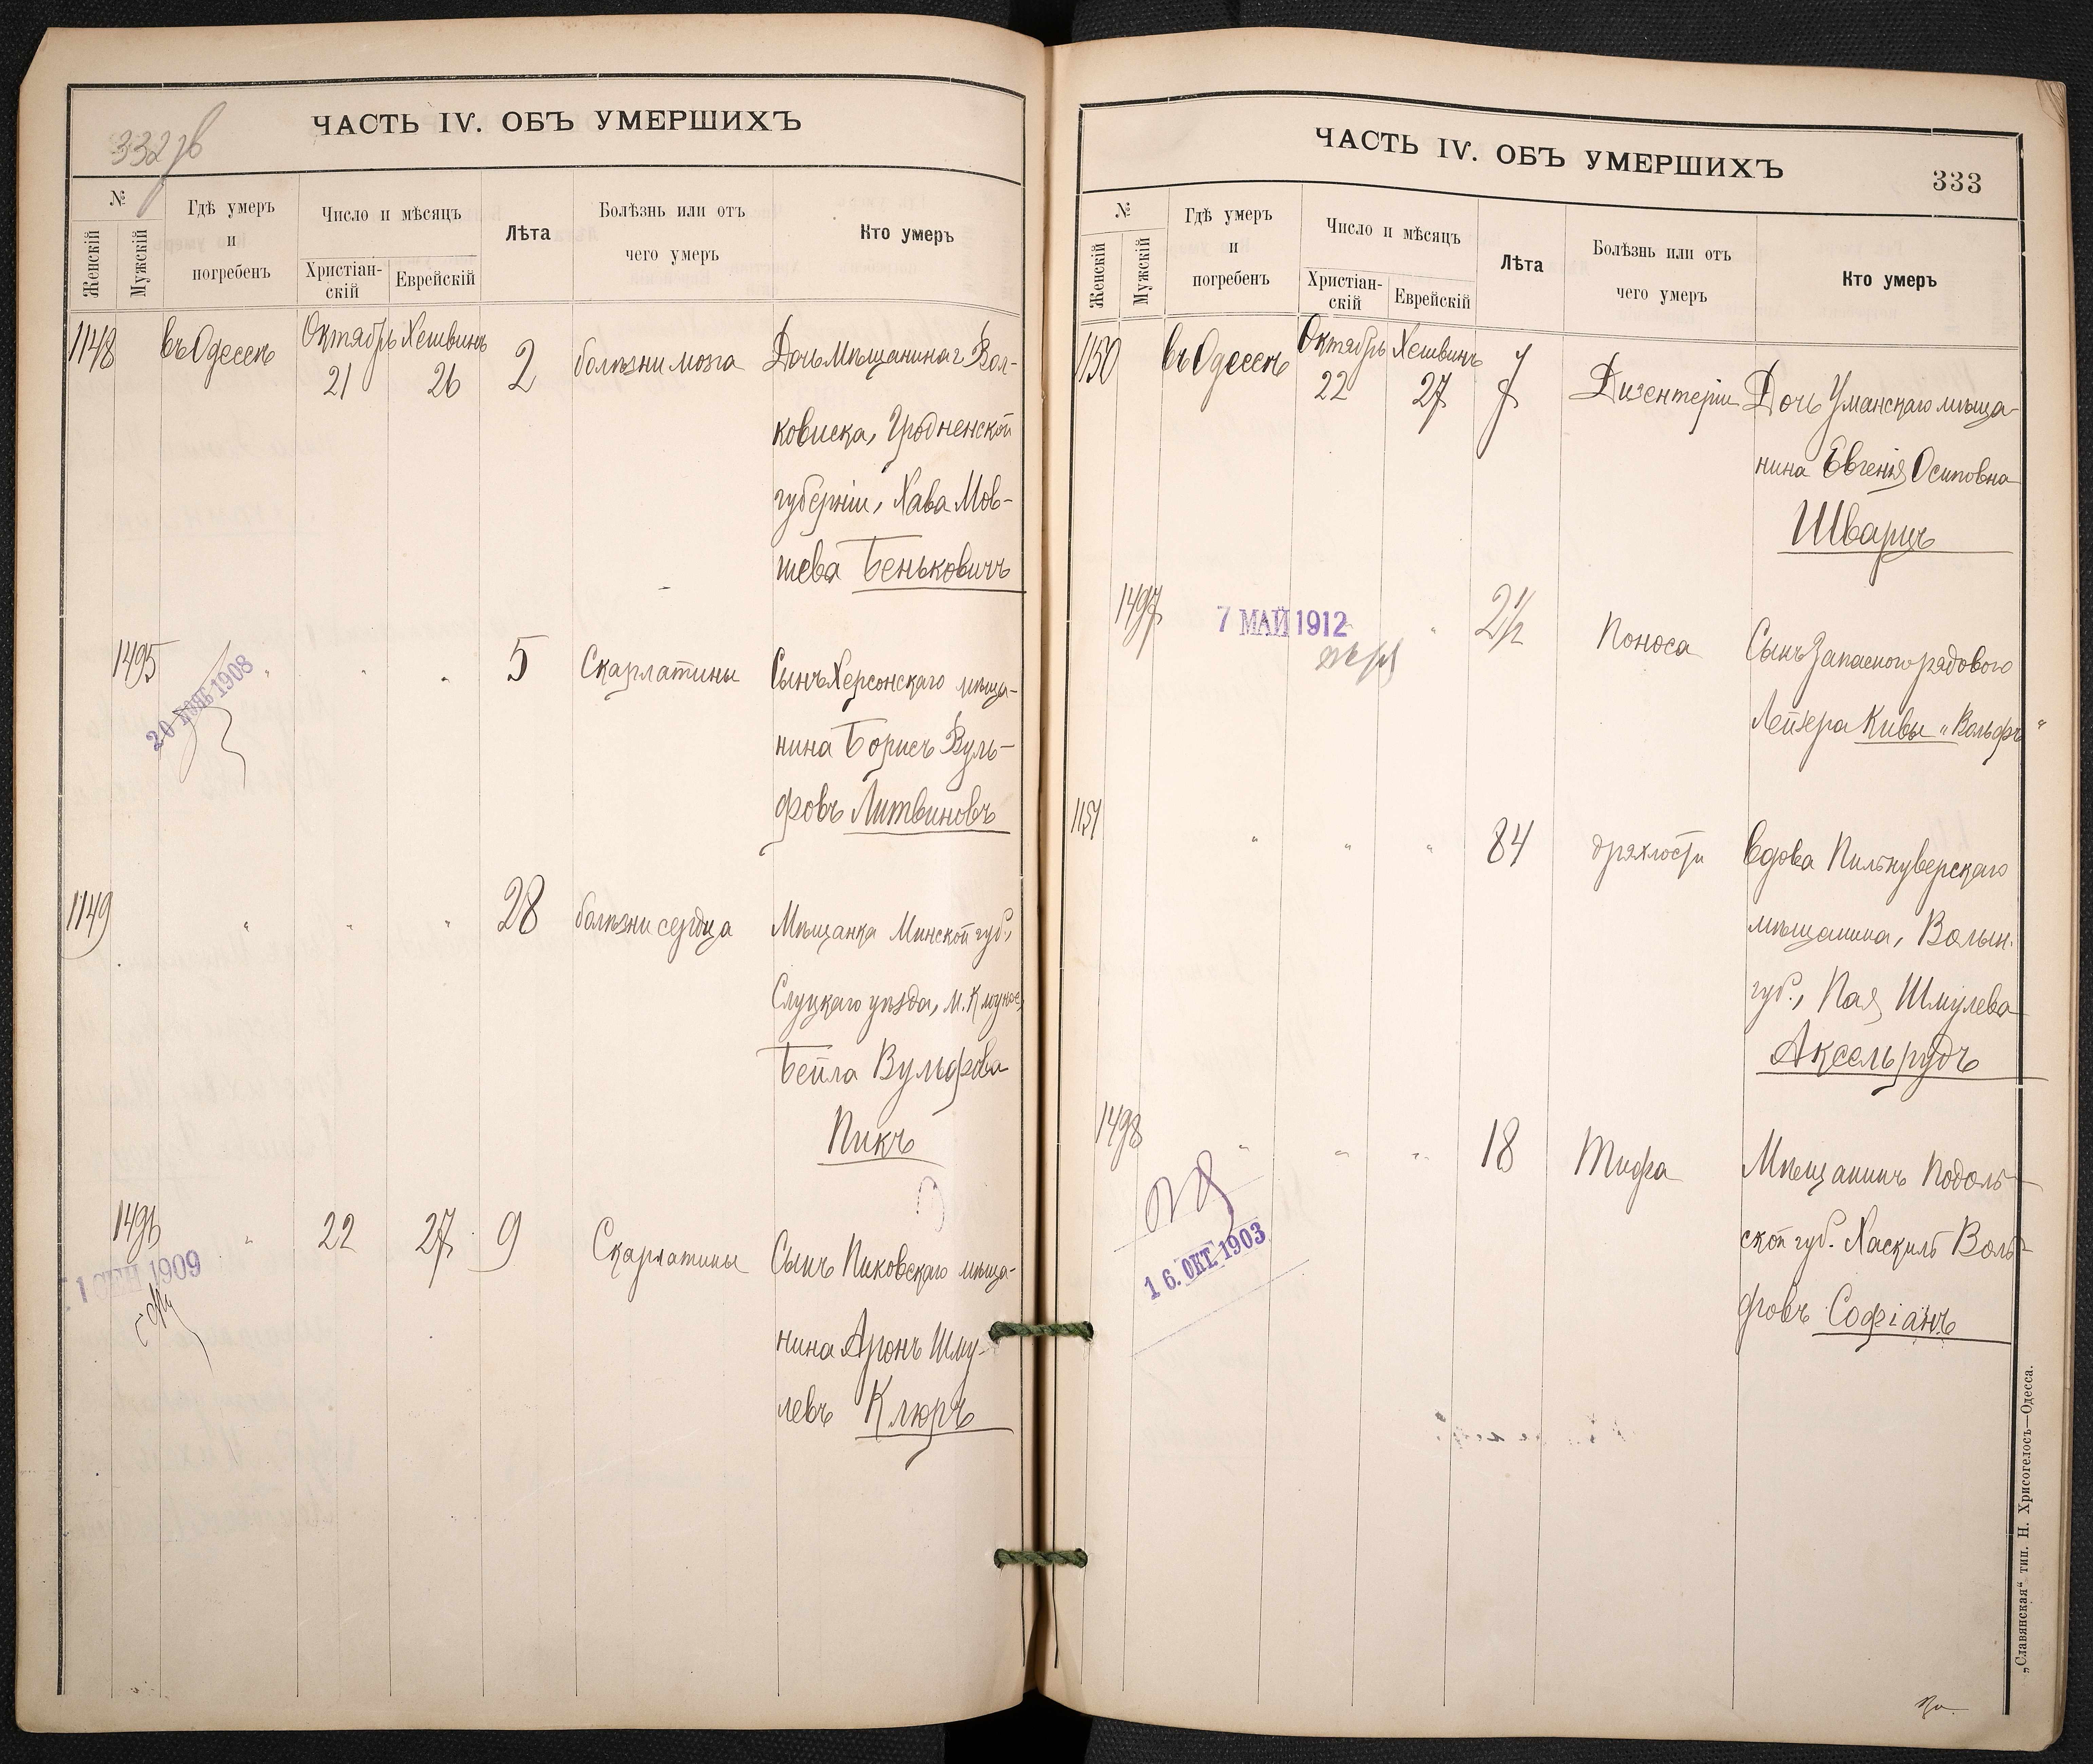 332 об
ЧАСТЬ IV. ОБЪ УМЕРШИХЪ
№
Женскій
Мужскій
Гдѣ умеръ
и
погребенъ
Число и мѣсяцъ
Христіан-
скій
Еврейскій
Лѣта
Болѣзнь или отъ
чего умеръ
Кто умеръ
1148 въ Одессѣ Октябрь 21 Хешвинъ 26 2 болѣзни мозга Дочь мѣщанина г. Вол-
ковиска, Гродненской
губерніи, Хава Мов-
шева Беньковичъ
1495 " " " 5 Скарлатины Сынъ Херсонскаго мѣща-
20 1908
нина Борисъ Вуль-
фовъ Литвиновъ
1149 " " " 28 болѣзни сердца Мѣщанка Минской губ.,
Слуцкаго уѣзда, м.
Бейла Вульфова
Пикъ
1496 " 22 27 9 Скарлатины Сынъ Пиковскаго мѣща-
1 СЕН 1909
нина Аронъ Шму-
левъ Клюръ
ЧАСТЬ IV. ОБЪ УМЕРШИХЪ
333
№
Женскій
Мужскій
Гдѣ умеръ
и
погребенъ
Число и мѣсяцъ
Христіан-
скій
Еврейскій
Лѣта
Болѣзнь или отъ
чего умеръ
Кто умеръ
1150 въ Одессѣ Октябрь 22 Хешвинъ 27 7 Дизентеріи Дочь Уманскаго мѣща-
нина Евгенія Осиповна
Шварцъ
1497 7 МАЙ 1912 " 2½ Поноса Сынъ Запасного рядового
Лейзера Кивы „Вольфъ“
1151 " " " 84 дряхлости Вдова
мѣщанина, Волын.
губ., Пая Шмулева
Аксельрудъ
1498 " " " 18 Тифа Мѣщанинъ Подоль-
16. ОКТ. 1903
ской губ. Хаскиль Воль-
фовъ Софіанъ
„Славянская“ тип. Н. Хрисогелосъ—Одесса.